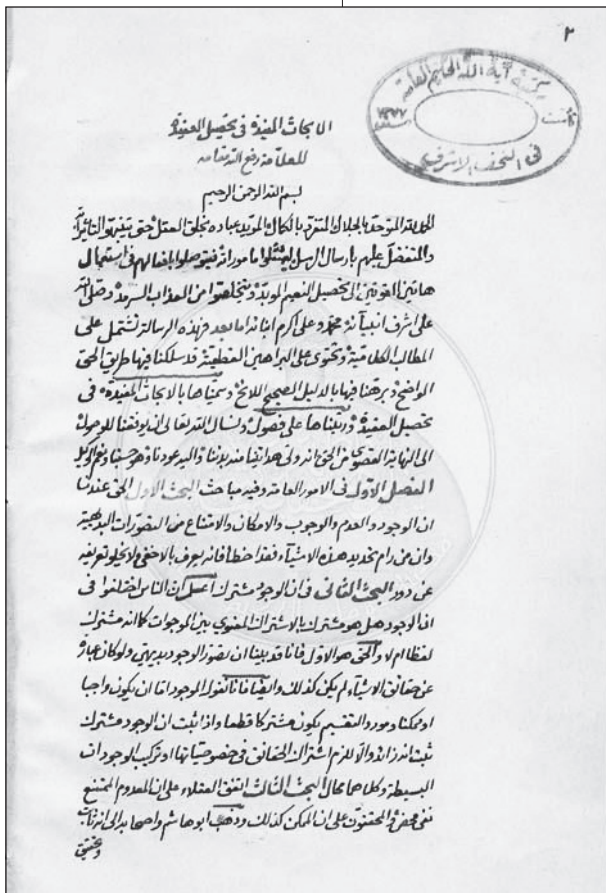 ٢
مكتبة آية الله الحكيم العامة
في النجف الاشرف
الابحاث المفيدة في تحصيل العقيدة
للعلامة رفع الله مقامه
بسم الله الرحمن الرحيم
الحمد لله المتوحد بالجلال المتفرد بالكمال المويد عباده بخلق العقل حتى
والمتفضل عليهم بارسال الرسل ليمتثلوا اوامره فيتوصلوا بافعالهم في استعمال
هاتين القوتين الى تحصيل النعيم الموبد ويتخلصوا من العذاب السرمد وصلى الله
على اشرف انبيآئه محمد وعلى اكرم امنائه اما بعد فهذه الرسالة تشتمل على
المطالب الكلامية وتحتوى على البراهين القطعية قد سلكنا فيها طريق الحق
الواضح وبرهنا فيها بالدليل الصحيح اللائح وسميناها بالابحاث المفيدة في
تحصيل العقيدة ورتبناها على فصول ونسال الله تعالى ان يوفقنا للوصول
الى النهاية القصوى من الحق انه ولى هدايتنا منه بدئنا واليه عودنا وهو حسبنا ونعم الوكيل
الفصل الاول في الامور العامة وفيه مباحث البحث الاول الحق عندنا
ان الوجود والعدم والوجوب والامكان والامتناع من التصورات البديهية
وان من رام تحديد هذه الاشيآء فقد اخطا فانه يعرف بالاخفى ولا يخلو تعريفه
عن دور البحث الثاني في ان الوجود مشترك اعلم ان الناس اختلفوا في
ان الوجود هل هو مشترك بالاشتراك المعنوي بين الموجودات كما انه مشترك
لفظا ام لا والحق هو الاول فانا قد بينا ان تصور الوجود بديهي ولو كان عبارة
عن حقائق الاشيآء لم يكن كذلك وايضا فانا نقول الموجود اما ان يكون واجبا
او ممكنا ومورد التقسيم يكون مشتركا قطعا واذا ثبت ان الوجود مشترك
ثبت انه زائد والا للزم اشتراك الحقائق في خصوصياتها او تركيب الوجودات
البسيطة وكلاهما محال البحث الثالث اتفق العقلاء على ان المعدوم الممتنع
نفي محض والمحققون على ان الممكن كذلك وذهب ابو هاشم واصحابه الى انه ثابت